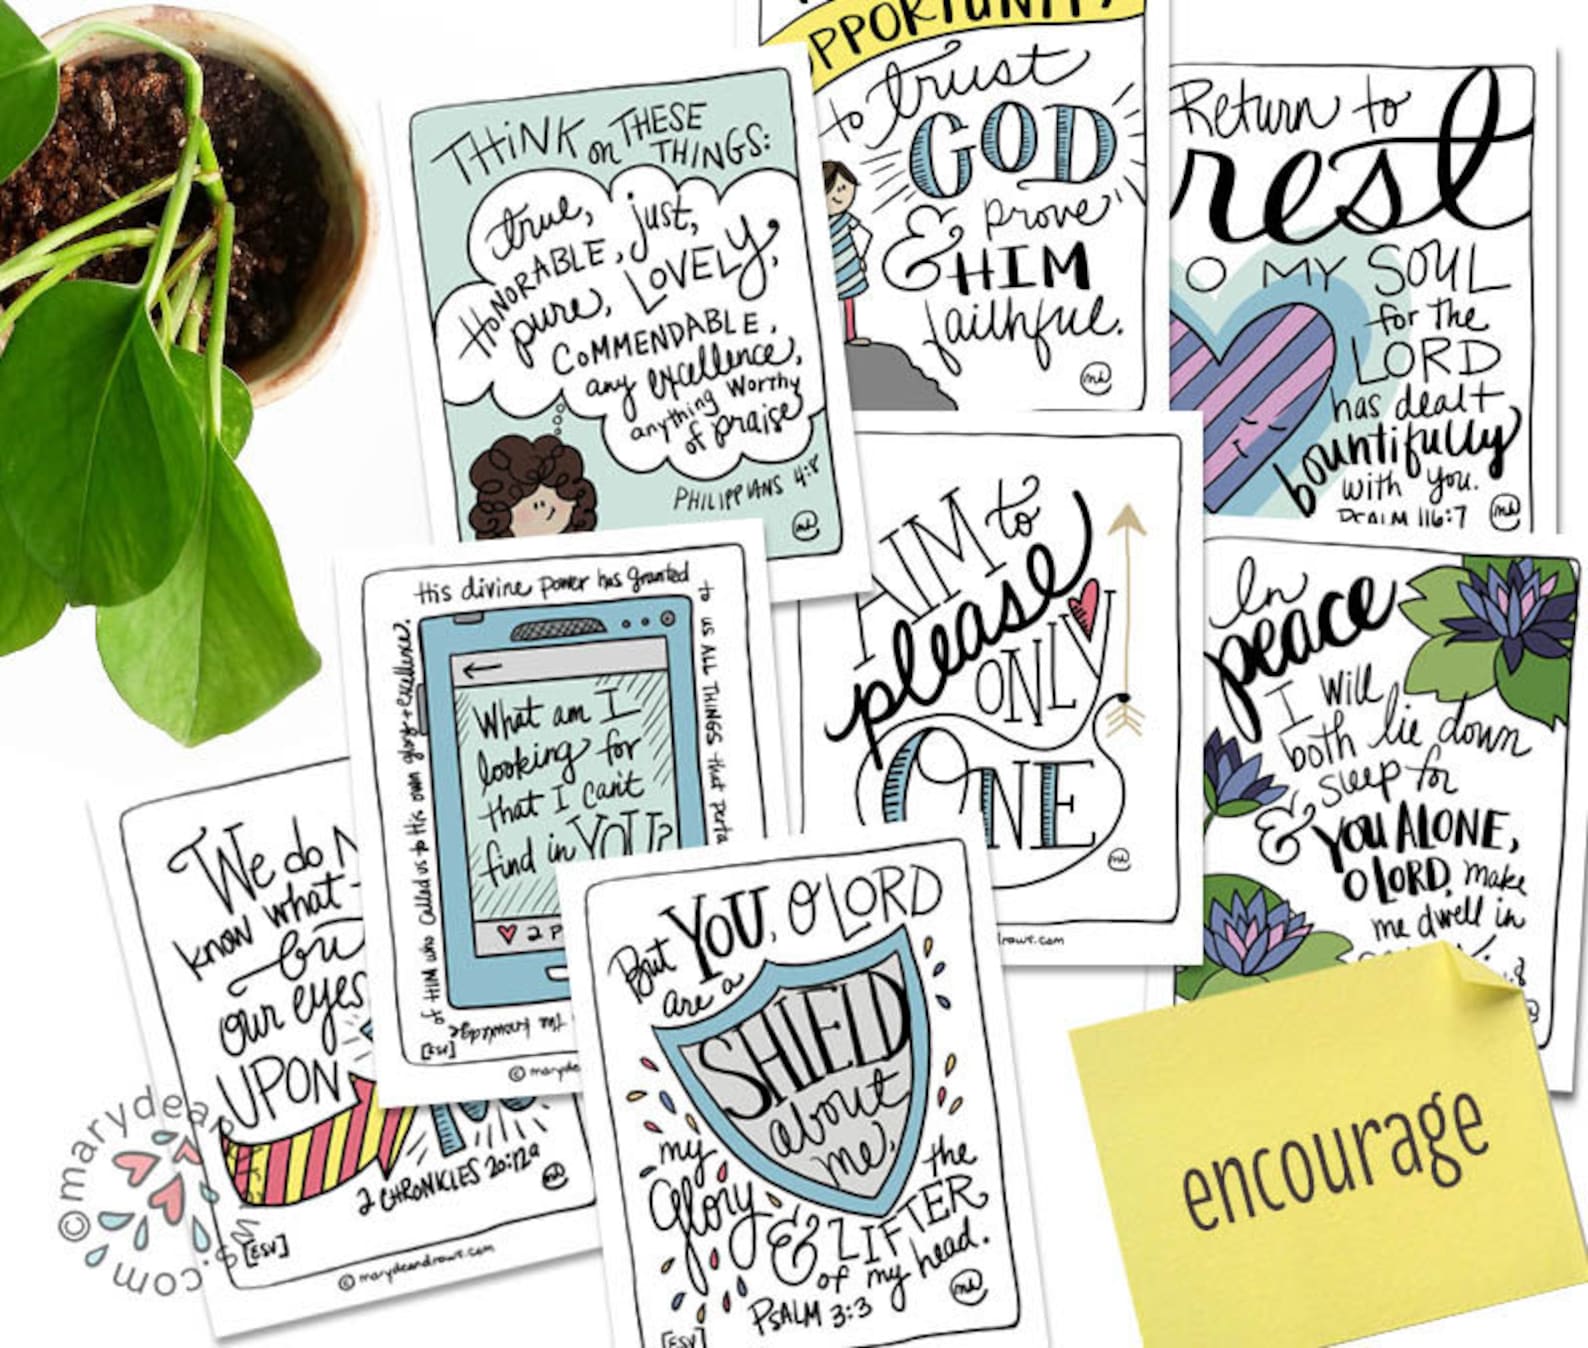 OPPORTUNITY
to trust
GOD
& prove
HIM
faithful.
mh
THiNK on THESE
THINGS:
true, just,
HONORABLE, LOVELY,
pure,
COMMENDABLE,
any excellence,
anything Worthy
of praise
PHILIPPIANS 4:8
mh
Return to
rest
O MY SOUL
for the
LORD
has dealt
bountifully
with you.
PSALM 116:7
mh
AIM to
please
ONLY
ONE
mh
draws.com
His divine power has granted
to us ALL THINGS that perta
The knowledge
of HIM who called us to His own glory + excellence.
What am I
looking for
that I can't
find in YOU?
2 P
[ESV]
© maryde
In
peace
I will
both lie down
& sleep for
YOU ALONE,
O LORD, make
me dwell in
:8
We do N
know what
bu
our eyes
UPON
2 CHRONICLES 20:12a
mh
[ESV]
© marydeandraws.com
But YOU, O LORD
are a
SHIELD
about
me,
my
Glory
& the
LIFTER
of my head.
PSALM 3:3
mh
[ESV]
encourage
©marydea
s.com